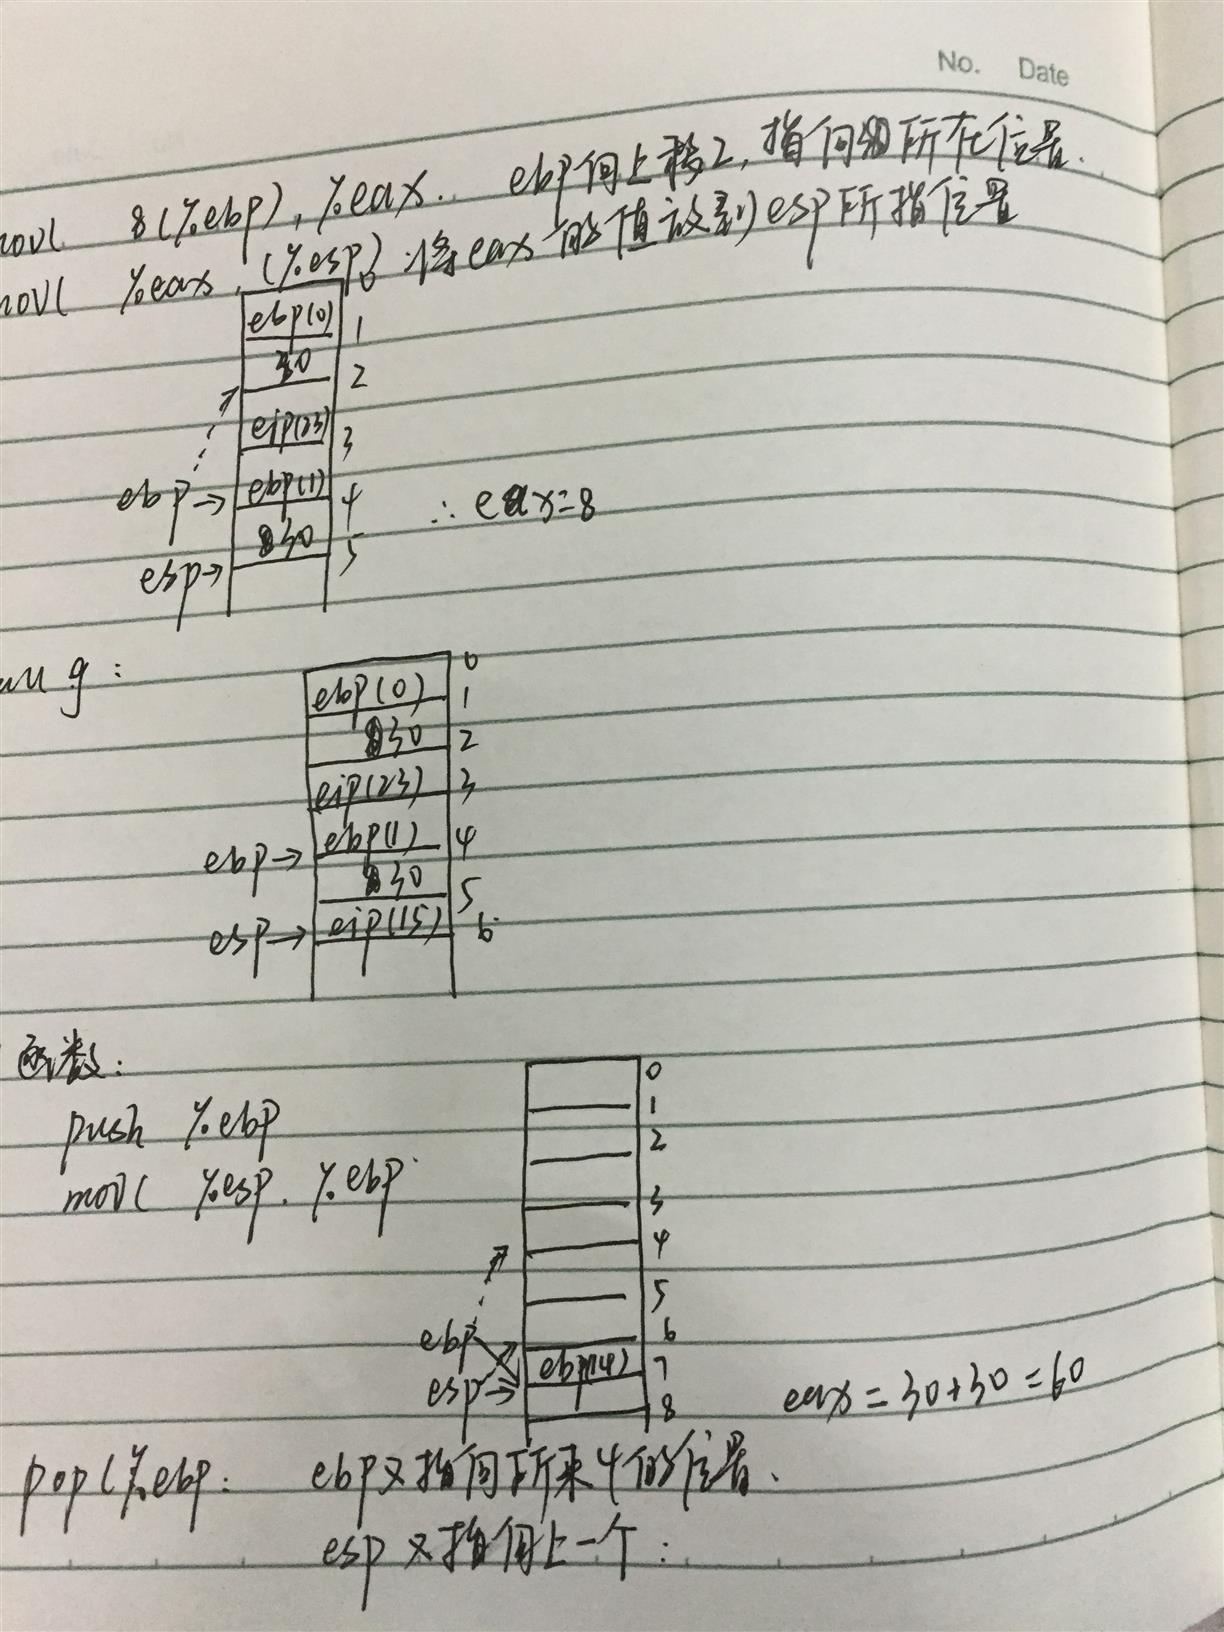 No. Date
movl 8(%ebp), %eax. ebp向上移2, 指向30所在位置.
movl %eax, (%esp) 将eax的值放到esp所指位置
0
ebp(0) 1
30 2
eip(23) 3
ebp→ ebp(1) 4
∴ eax=8
30 5
esp→
g:
0
ebp(0) 1
30 2
eip(23) 3
ebp→ ebp(1) 4
30 5
esp→ eip(15) 6
函数:
0
push %ebp
1
movl %esp, %ebp
2
3
4
5
ebp 6
esp→ ebp(4) 7
8
eax=30+30=60
popl %ebp: ebp又指向原来4的位置.
esp又指向上一个: